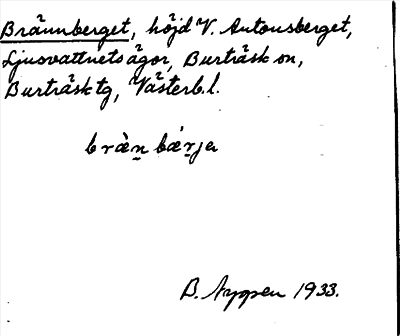 Brännberget, höjd V. Antonsberget,
Ljusvattnets ägor, Burträsk sn,
Burträsk tg, Västerb. l.
bràn bǽrjə
B. Nyppen 1933.